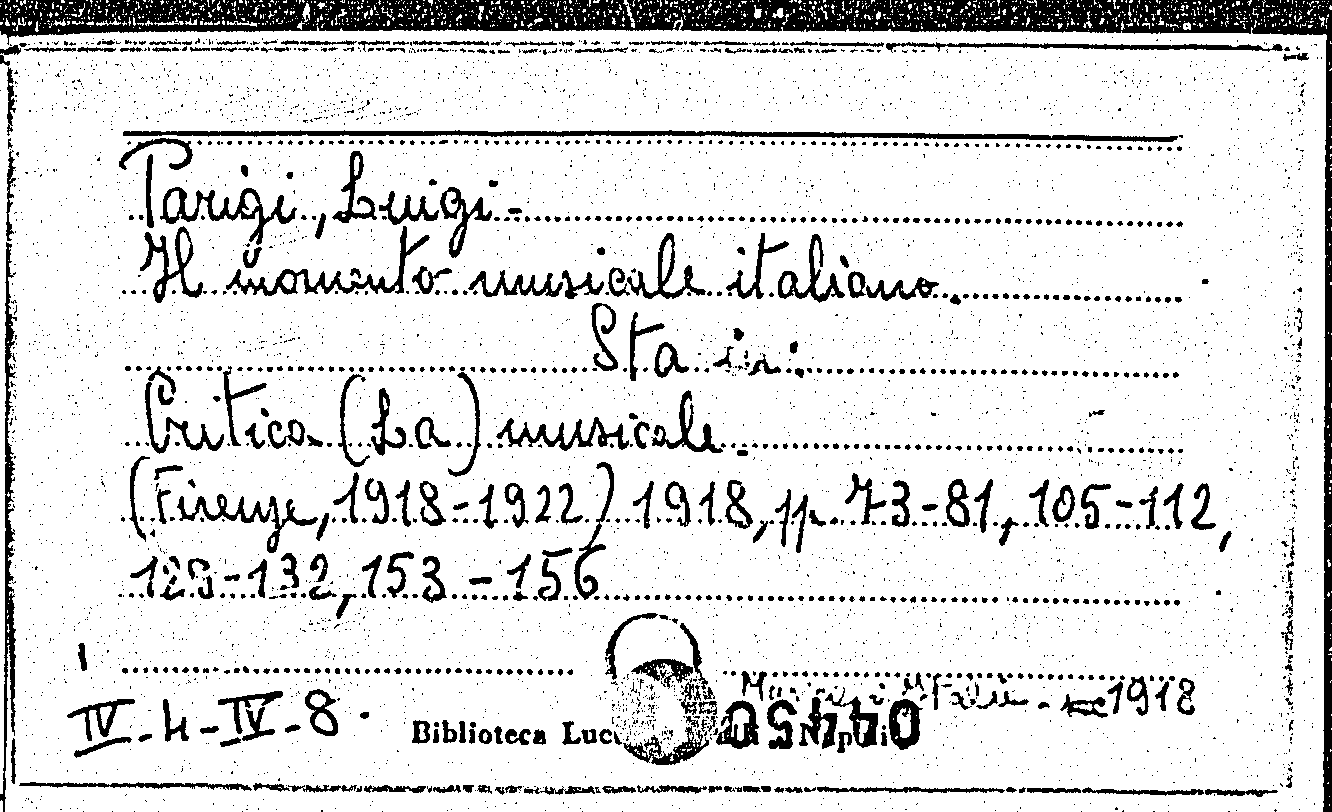 Parigi, Luigi -
Il momento musicale italiano.
Sta in:
Critica (La) musicale.
(Firenze, 1918-1922) 1918, pp. 73-81, 105-112,
129-132, 153-156
I
1918
IV-4-IV-8.
Biblioteca
04450